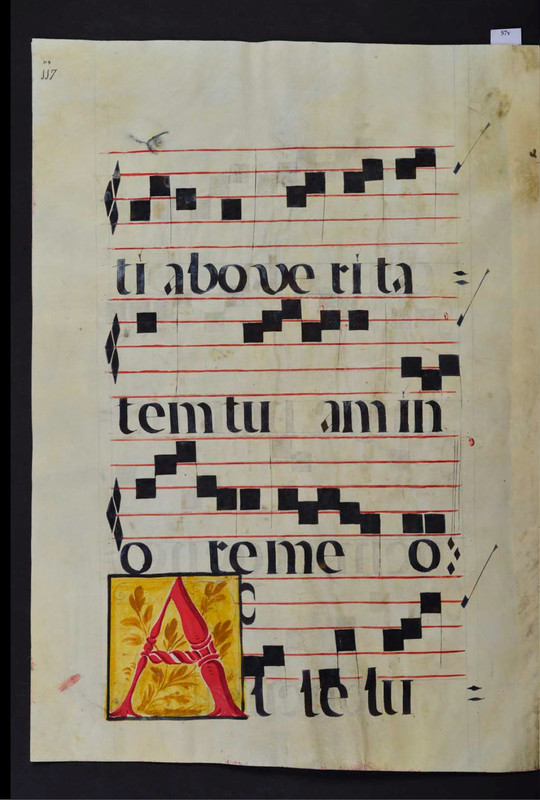 57v
117
ti abo ve ri ta
tem tu am in
o re me o
At te tu